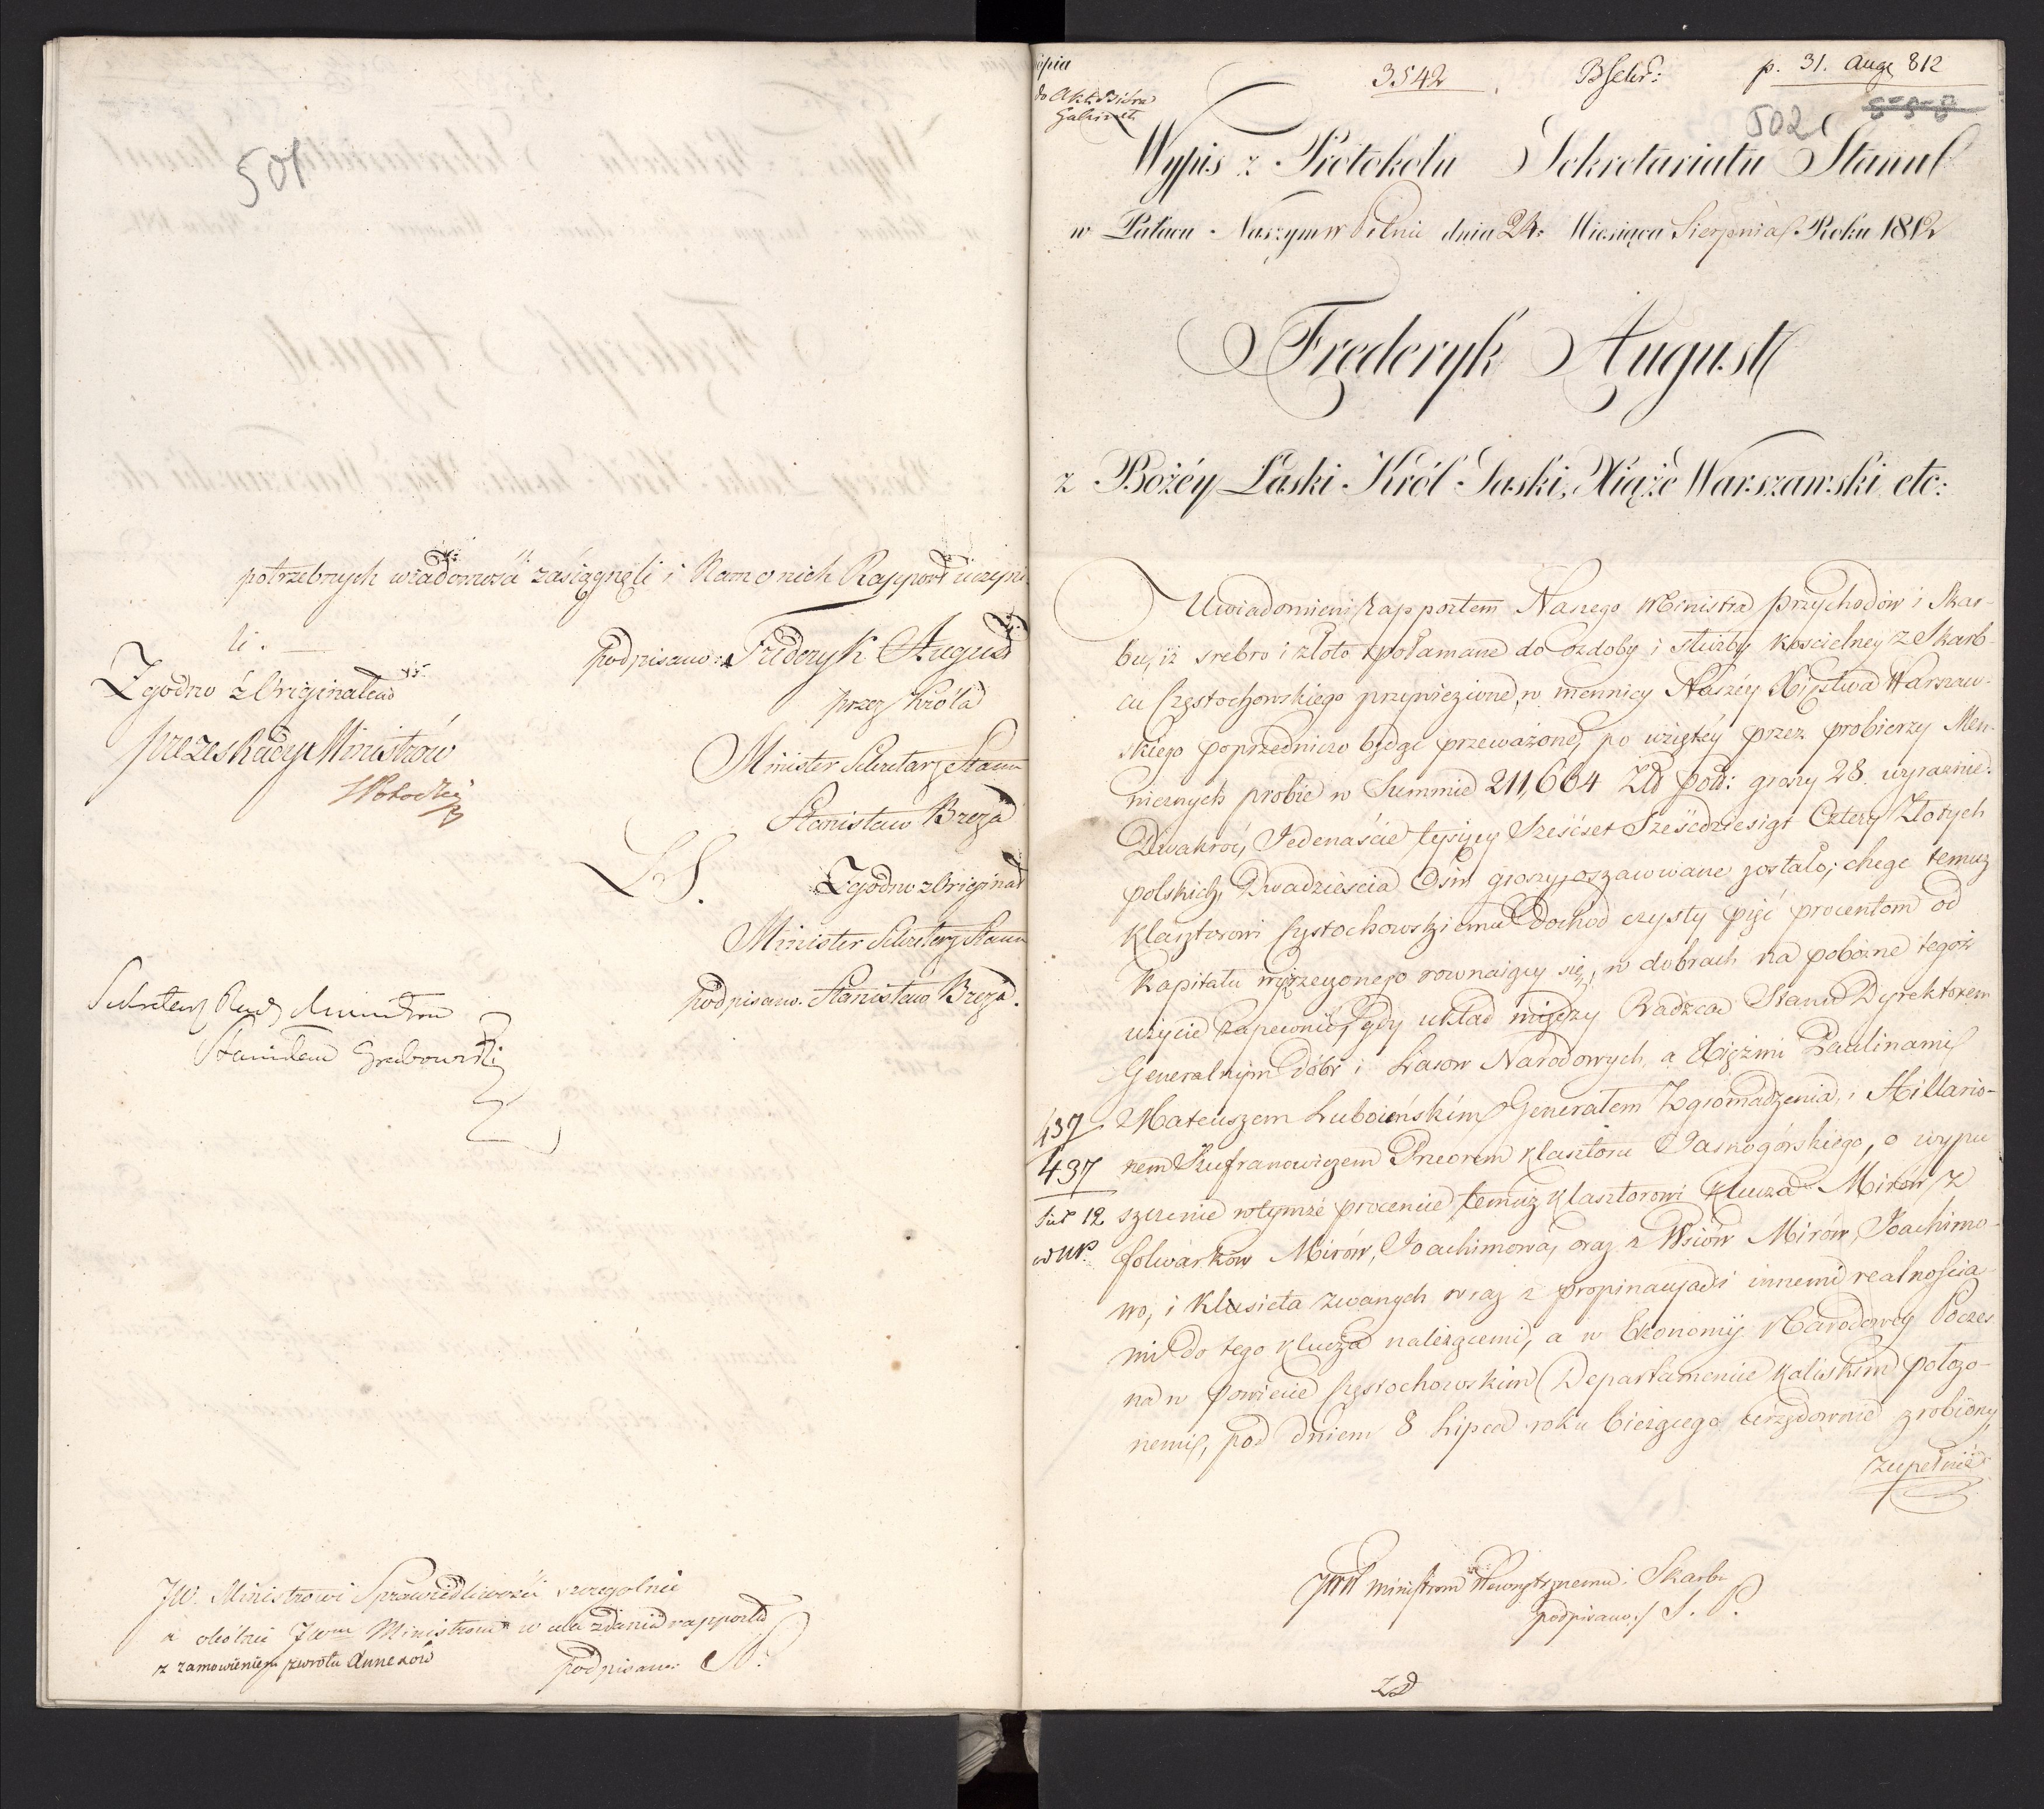 501
potrzebnych wiadomości zasiągnęli i Nam o nich Rapport uczyni
li.
podpisano: Frideryk August
Zgodno z Originałem
przez Króla
Prezes Rady Ministrów
Minister Sekretarz Stanu
Stanisław Breza
L. S.
Zgodno z Originał
Minister Sekretarz Stanu
podpisano. Stanisław Breza.
Sekretarz Rady Ministrów
Stanisław Grabowski
JW. Ministrowi Sprawiedliwości szczególnie
a ogólnie JWm Ministrom w celu zdania rapportu
z zamówieniem zwrotu Annexów
podpisano:
kopia
do Akt Bióra
Gabinet.
3542
p. 31. Aug 812
502
Wypis z Protokołu Sekretariatu Stanu
w Pałacu Naszym w Pilnic dnia 24: Miesiąca Sierpnia Roku 1812
Frederyk August
z Bożéy Łaski Król Saski, Xiąże Warszawski etc:
Uwiadomieni rapportem Naszego Ministra Przychodów i Skar-
bu, iż srebro i złoto połamane do ozdoby i służby kościelney z Skarb-
cu Częstochowskiego przywiezione, w mennicy Naszéy Xięstwa Warszaw-
skiego poprzedniczo będąc przeważone, po wziętéy przez probierzy Men-
nicznych probie w Summie 211,664 Zł pol: groszy 28 wyraznie:
Dwakroć Jedenaście tysięcy Sześćset Sześćdziesiąt Cztery Złotych
polskich, Dwadzieścia Ośm groszy, oszacowane zostało; chcąc temuż
Klasztorowi Częstochowskiemu dochód czysty pięć procentom od
Kapitału wyrzeczonego równaiący się, w dobrach na pobożne tegoż
użycie zapewnić, gdy układ między Radzcą Stanu Dyrektorem
Generalnym Dóbr i Lasow Narodowych, a Xiężmi Paulinami
437 Mateuszem Luboieńskim Generałem Zgromadzenia, i Hillario-
437 nem Kufranowiczem Przeorem Klasztoru Jasnogórskiego, o wypu
12 szczenie w tymże procencie temuż Klasztorowi Klucza Mirów z
folwarków Mirów, Joachimowa, oraz z Wsiów Mirów, Joachimo-
wo, i Klusieta zwanych wraz z propinacyą i innemi realnościa-
mi do tego klucza należącemi, a w Ekonomij Narodowey Poczes
na w Powiecie Częstochowskim Departamencie Kaliskim położo-
nemi, pod dniem 8 Lipca roku bieżącego urzędownie zrobiony,
zupełnie
Ministrom Wewnętrznemu i Skarbu
podpisano:/ S. P.